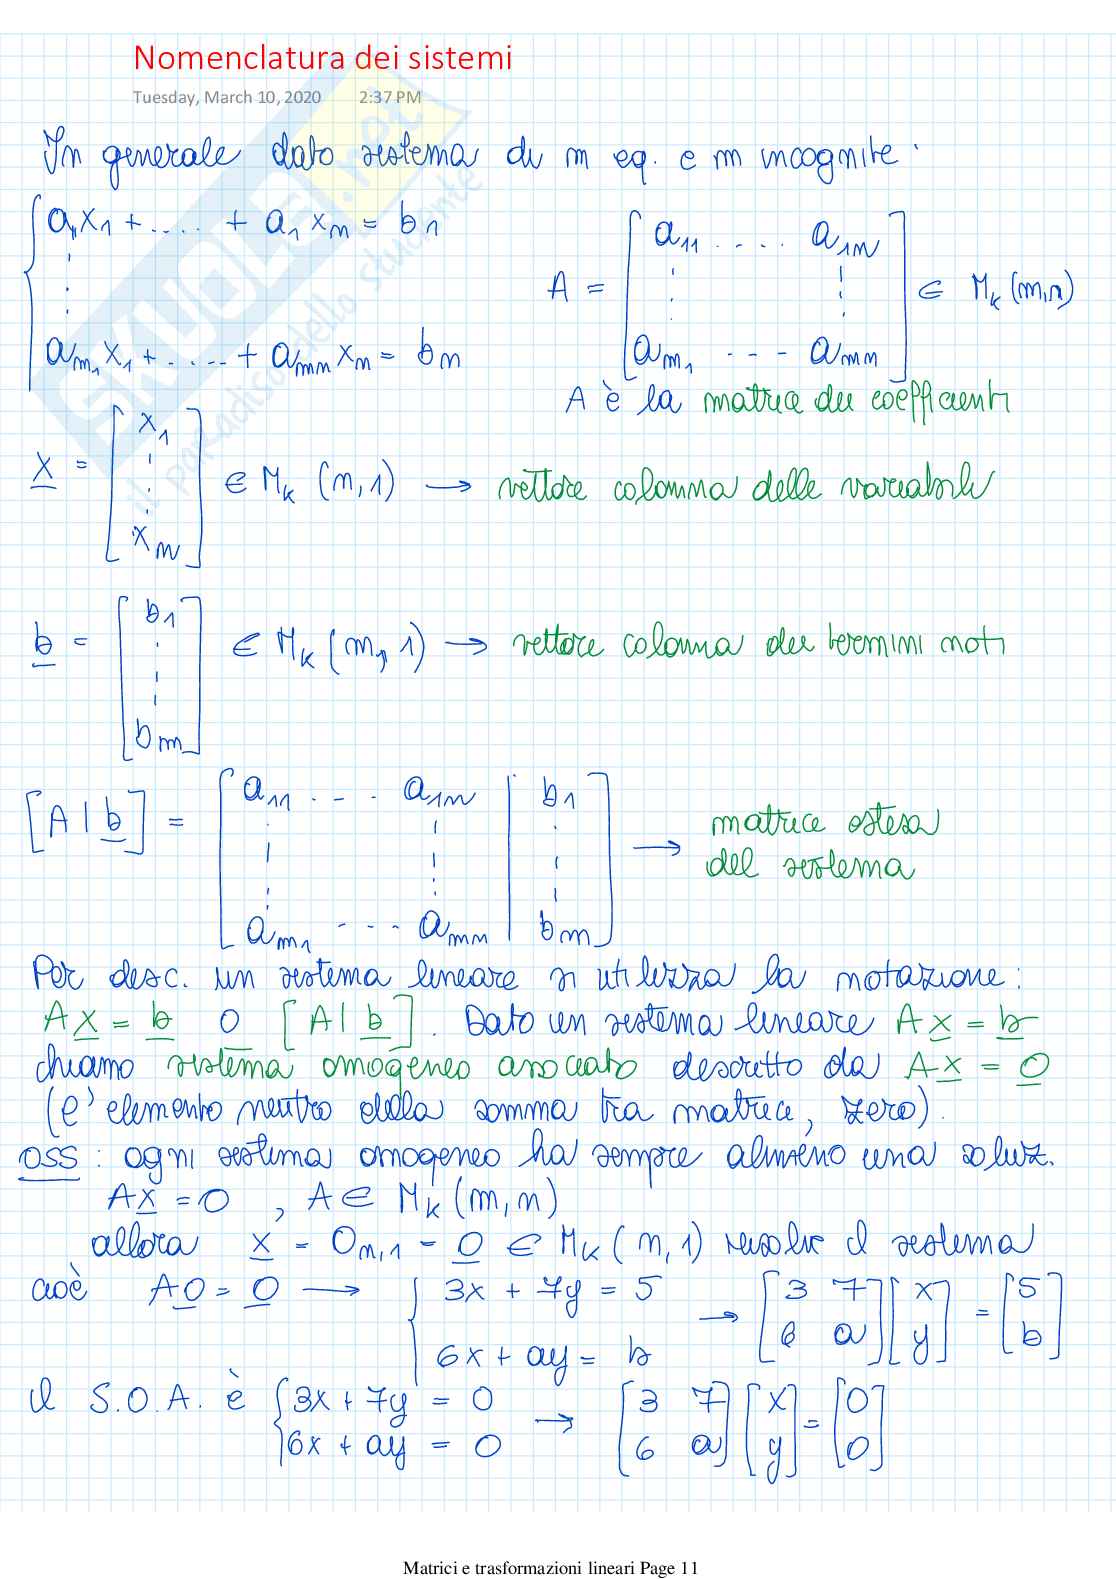 Nomenclatura dei sistemi
Tuesday, March 10, 2020 2:37 PM
In generale dato sistema di m eq. e n incognite.
a₁₁x₁ + .... + a₁ xₙ = b₁
⋮
aₘ₁x₁ + ..... + aₘₙxₙ = bₘ
A = [a₁₁ .... a₁ₙ ⋮ ⋮ aₘ₁ --- aₘₙ] ∈ Mₖ(m,n)
A è la matrice dei coefficienti
x = [x₁ ⋮ xₙ] ∈ Mₖ (n,1) → vettore colonna delle variabili
b = [b₁ ⋮ bₘ] ∈ Mₖ (m,1) → vettore colonna dei termini noti
[A | b] = [a₁₁ .-.. a₁ₙ | b₁ ⋮ ⋮ | ⋮ aₘ₁ --.. aₘₙ | bₘ] → matrice estesa
del sistema
Per desc. un sistema lineare si utilizza la notazione:
Ax = b o [A | b]. Dato un sistema lineare Ax = b
chiamo sistema omogeneo associato descritto da Ax = 0
(e' elemento neutro della somma tra matrice, zero).
OSS: ogni sistema omogeneo ha sempre almeno una soluz.
Ax = 0 , A ∈ Mₖ (m,n)
allora x = 0ₙ,₁ = 0 ∈ Mₖ (n,1) risolve il sistema
cioè A0 = 0 → { 3x + 7y = 5 → [3 7 6 a][x y] = [5 b]
6x + ay = b
il S.O.A. è { 3x + 7y = 0 → [3 7 6 a][x y] = [0 0]
6x + ay = 0
Matrici e trasformazioni lineari Page 11
SKUOLA.net
il paradiso dello studente